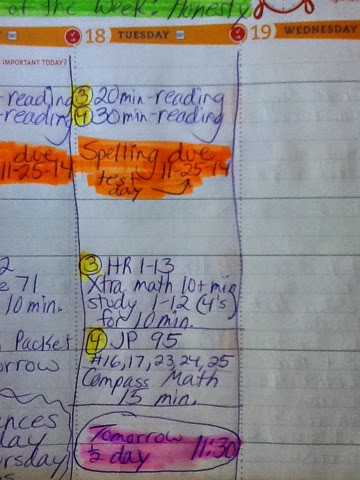 of the Week: Honesty
18 TUESDAY
19 WEDNESDAY
IMPORTANT TODAY?
-reading
-reading
③ 20min-reading
④ 30min-reading
due
11-25-14
Spelling due
11-25-14
test
day
2
e 71
10 min.
③ HR 1-13
Xtra math 10+ min
study 1-12 (4's)
for 10 min.
Packet
orrow
④ JP 95
#16,17,23,24,25
Compass Math
15 min.
ences
day
rsday
Tomorrow
½ day 11:30